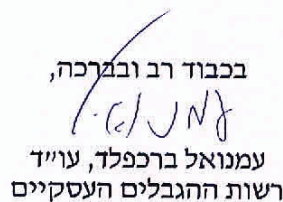 בכבוד רב ובברכה,
עמנואל ברכפלד, עו״ד
רשות ההגבלים העסקיים